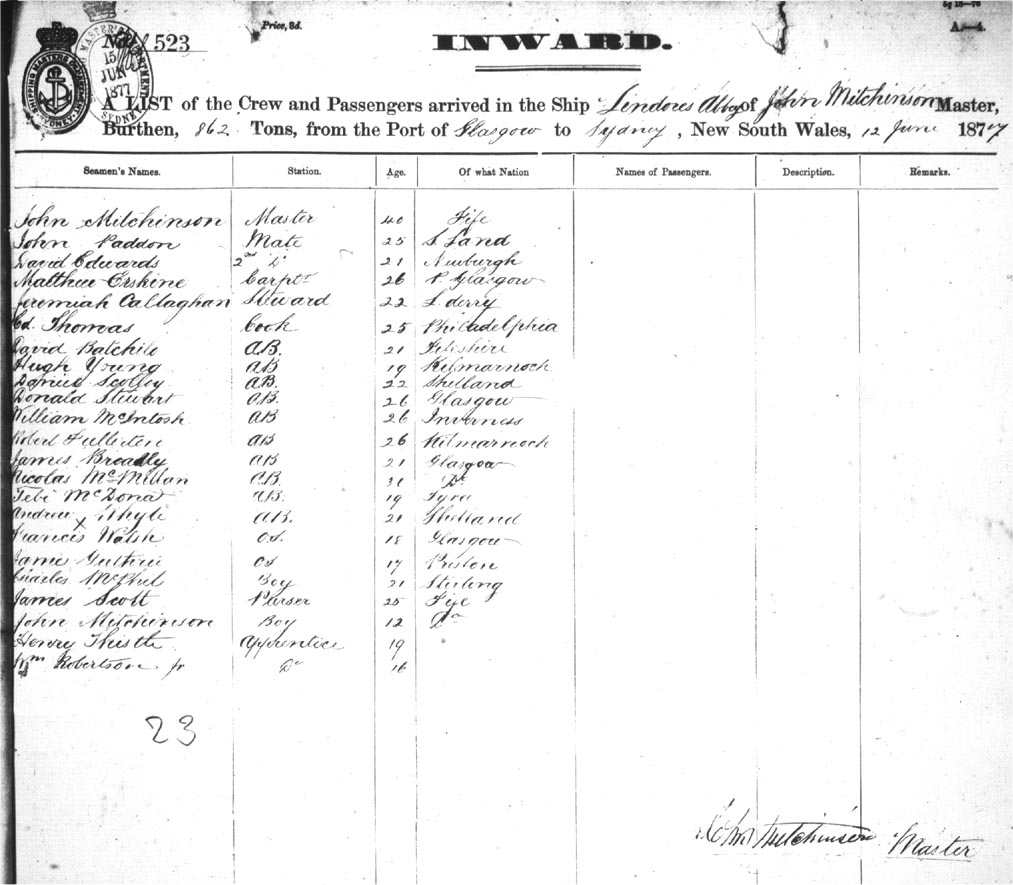 Price, 8d.
No. 523
INWARD.
A—4.
SHIPPING MASTER'S DEPARTMENT SYDNEY
15 JUN 1877
SYDNEY
A LIST of the Crew and Passengers arrived in the Ship Lindores Abby of John Mitchinson Master,
Burthen, 862 Tons, from the Port of Glasgow to Sydney, New South Wales, 12 June 1877
Seamen's Names. Station. Age. Of what Nation Names of Passengers. Description. Remarks.
John Mitchinson Master 40 Fife
John Paddon Mate 25 S Land
David Edwards 2nd Do 21 Newburgh
Matthew Erskine Carptr 26 P. Glasgow
Jeremiah Callaghan Steward 22 L. derry
Ed. Thomas Cook 25 Philadelphia
David AB. 21 Fifeshire
Hugh Young AB 19 Kilmarnock
Daniel Scolley AB. 22 Shetland
Donald Stewart A.B. 26 Glasgow
William McIntosh AB 26 Inverness
Robert Fullerton AB 26 Kilmarnock
James Broadly AB 21 Glasgow
Nicolas McMillan A.B. 31 Do
McDona AB. 19
Andrew x Whyte AB. 21 Shetland
Francis Walsh OS. 18 Glasgow
James Guthrie OS 17 Preston
Charles McPhel Boy 21 Sterling
James Scott Purser 25 Fife
John Mitchinson Boy 12 Do
Henry Thistle Apprentice 19
Wm Robertson Jr Do 16
23
John Mitchinson Master